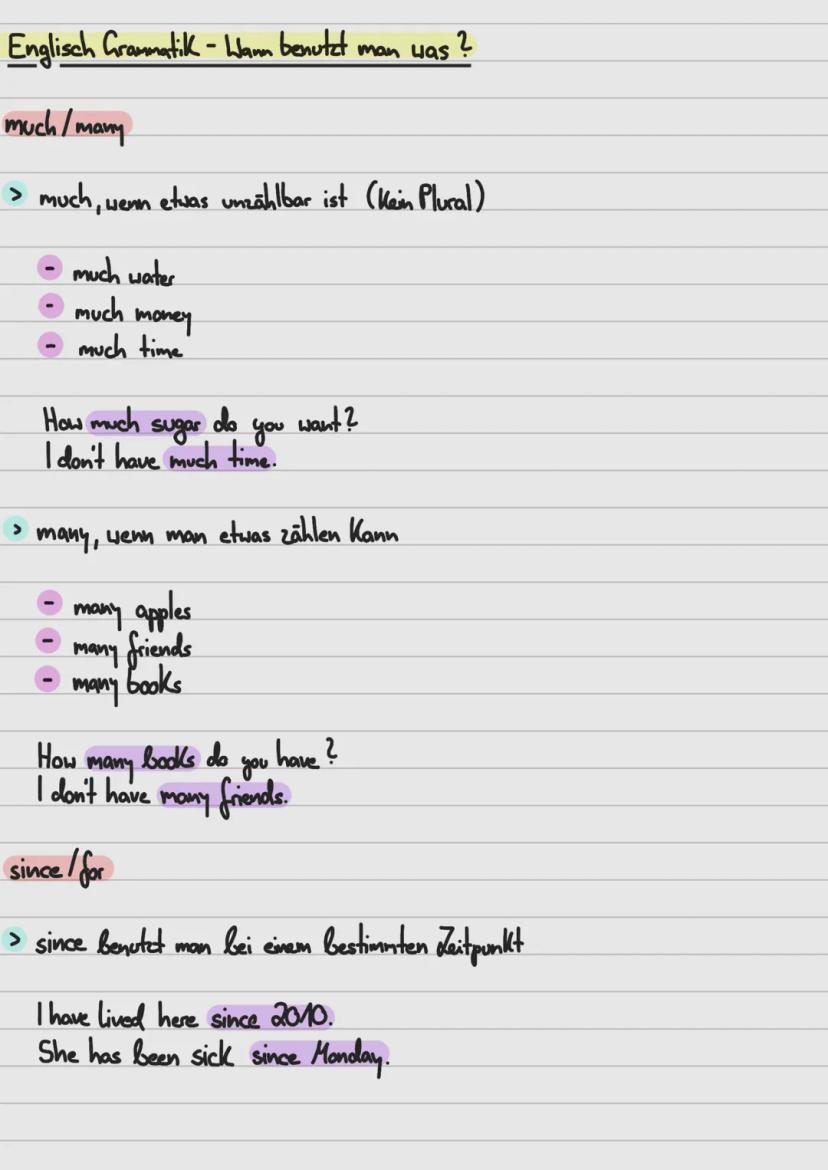 Englisch Grammatik - Wann benutzt man was?
much/many
> much, wenn etwas unzählbar ist (Kein Plural)
- much water
- much money
- much time
How much sugar do you want?
I don't have much time.
> many, wenn man etwas zählen Kann
- many apples
- many friends
- many books
How many books do you have?
I don't have many friends.
since/for
> since benutzt man bei einem bestimmten Zeitpunkt
I have lived here since 2010.
She has been sick since Monday.